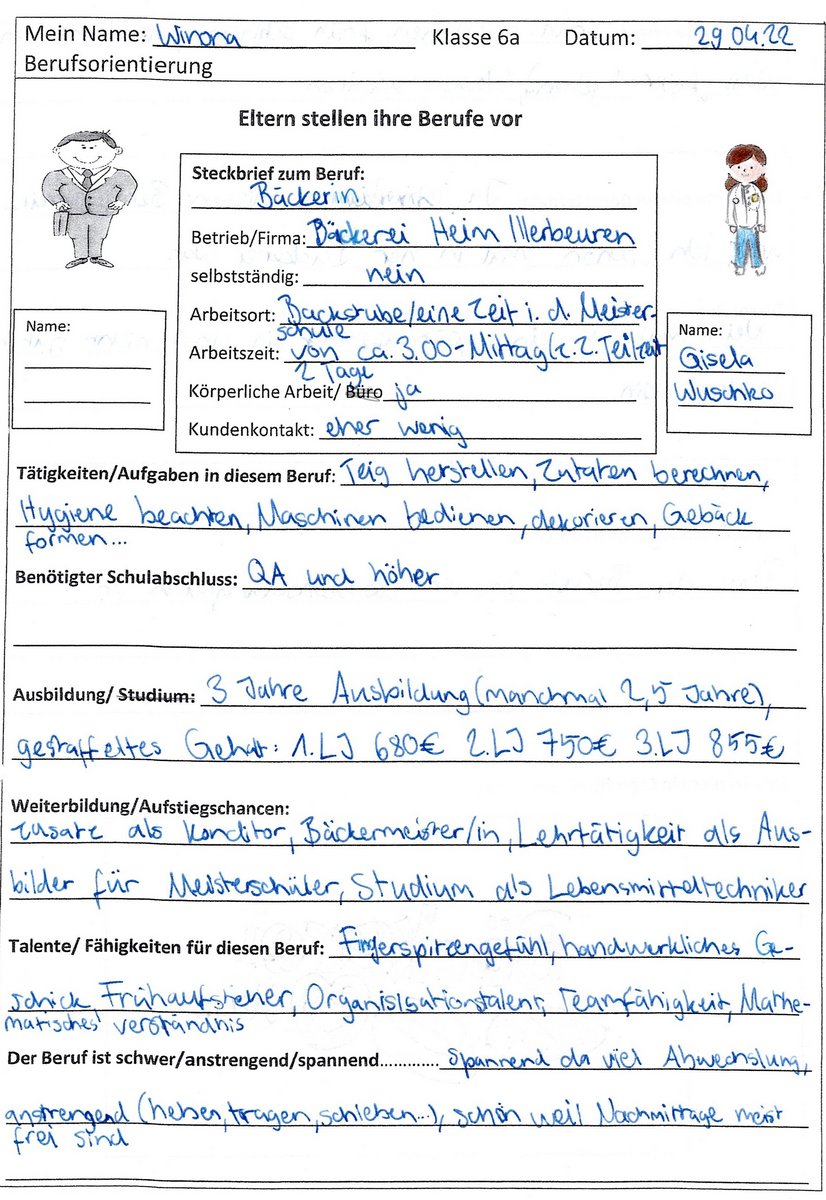 Mein Name: Winona Klasse 6a Datum: 29.04.22
Berufsorientierung
Eltern stellen ihre Berufe vor
Steckbrief zum Beruf:
Bäckerin
Betrieb/Firma: Bäckerei Heim Illerbeuren
selbstständig: nein
Arbeitsort: Backstube/eine Zeit i. d. Meister-
schule
Arbeitszeit: von ca. 3.00-Mittag (z. Z. Teilzeit
2 Tage
Körperliche Arbeit/ Büro ja
Kundenkontakt: eher wenig
Name:
Name:
Gisela
Wuschko
Tätigkeiten/Aufgaben in diesem Beruf: Teig herstellen, Zutaten berechnen,
Hygiene beachten, Maschinen bedienen, dekorieren, Gebäck
formen...
Benötigter Schulabschluss: QA und höher
Ausbildung/ Studium: 3 Jahre Ausbildung (manchmal 2,5 Jahre),
gestaffeltes Gehalt: 1.LJ 680€ 2.LJ 750€ 3.LJ 855€
Weiterbildung/Aufstiegschancen:
Zusatz als Konditor, Bäckermeister/in, Lehrtätigkeit als Aus-
bilder für Meisterschüler, Studium als Lebensmitteltechniker
Talente/ Fähigkeiten für diesen Beruf: Fingerspitzengefühl, handwerkliches Ge-
schick Frühaufsteher, Organisisationstalent, Teamfähigkeit, Mathe-
matisches verständnis
Der Beruf ist schwer/anstrengend/spannend............. Spannend da viel Abwechslung,
anstrengend (heben, tragen, schieben...), schön weil Nachmittage meist
frei sind